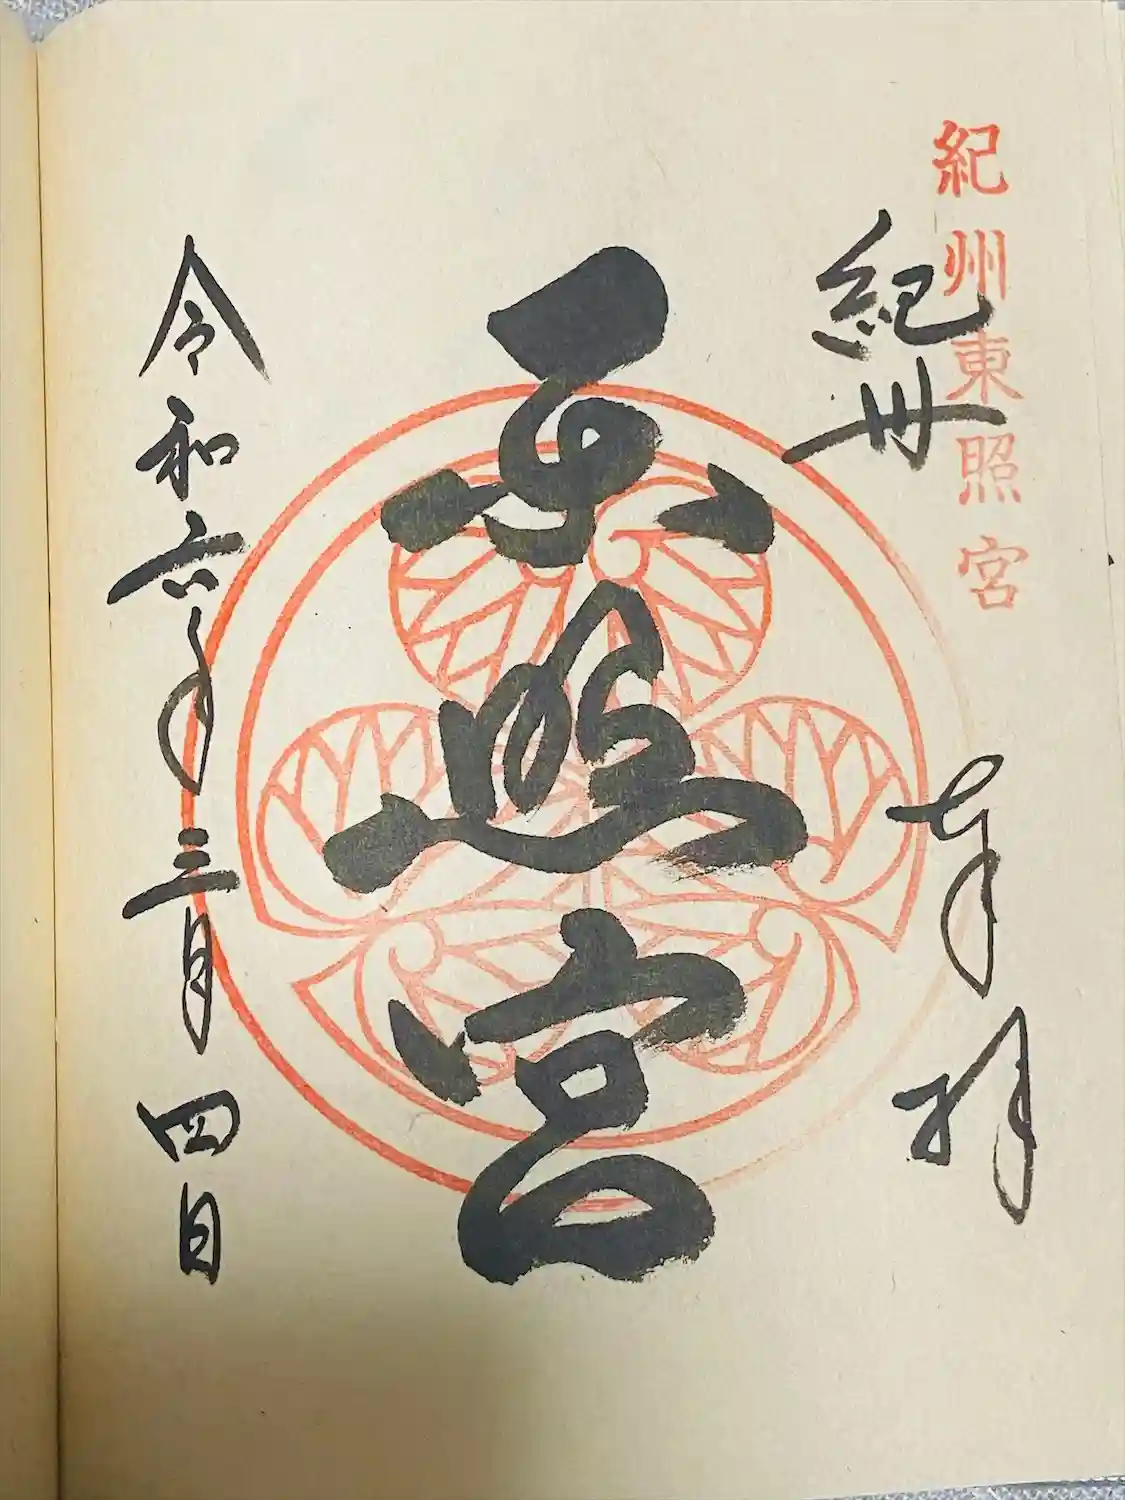 紀州東照宮
紀州
奉拝
東照宮
令和六年三月四日